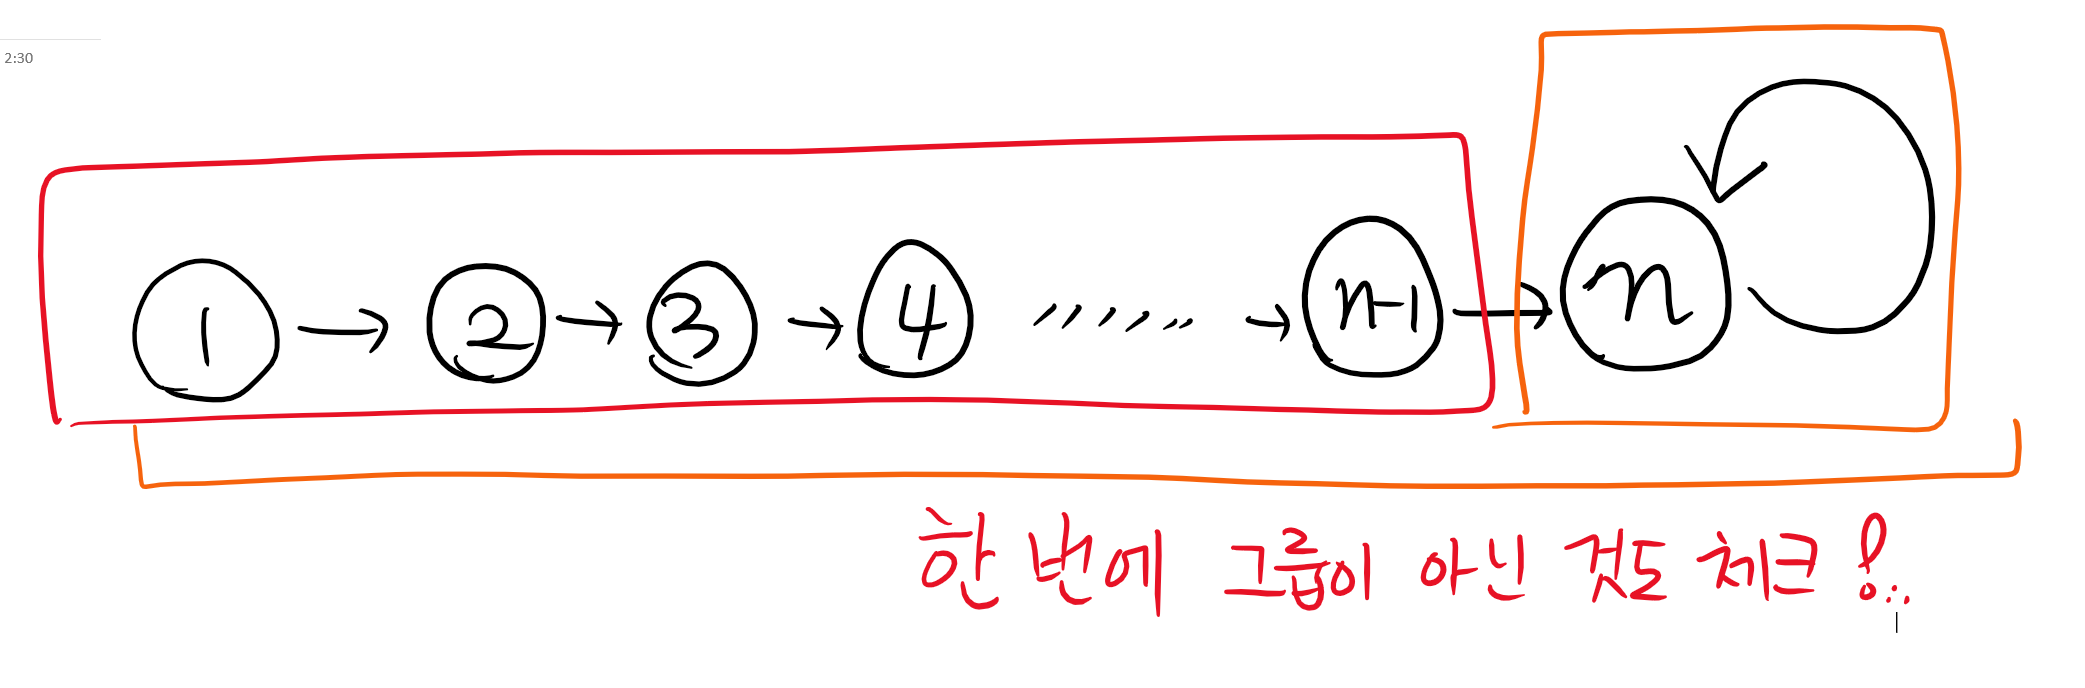 2:30
1 → 2 → 3 → 4 ,,,,,, → n-1 → n
한 번에 그룹이 아닌 것도 체크!